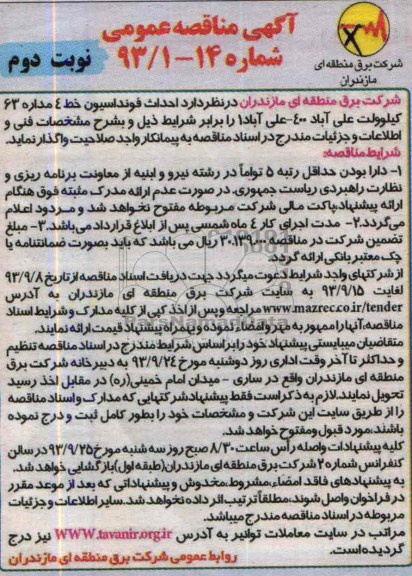 آگهی مناقصه عمومی
شماره ۱۴-۹۳/۱
نوبت دوم
شرکت برق منطقه ای
مازندران
شرکت برق منطقه ای مازندران درنظردارد احداث فونداسیون خط ٤ مداره ۶۳
کیلوولت علی آباد ۴۰۰-علی آباد۱ را برابر شرایط ذیل و بشرح مشخصات فنی و
اطلاعات و جزئیات مندرج در اسناد مناقصه به پیمانکار واجد صلاحیت واگذار نماید.
شرایط مناقصه:
۱- دارا بودن حداقل رتبه ۵ تواماً در رشته نیرو و ابنیه از معاونت برنامه ریزی و
نظارت راهبردی ریاست جمهوری. در صورت عدم ارائه مدرک مثبته فوق هنگام
ارائه پیشنهاد، پاکت مالی شرکت مربوطه مفتوح نخواهد شد و مردود اعلام
می‌گردد.۲- مدت اجرای کار ٤ ماه شمسی پس از ابلاغ قرارداد می‌باشد.۳- مبلغ
تضمین شرکت در مناقصه ۳۰،۱۳۹،۰۰۰ ریال می باشد که باید بصورت ضمانتنامه یا
چک معتبر بانکی ارائه گردد.
از شرکتهای واجد شرایط دعوت میگردد جهت دریافت اسناد مناقصه از تاریخ ۹۳/۹/۸
لغایت ۹۳/۹/۱۵ به سایت شرکت برق منطقه ای مازندران به آدرس
www.mazrec.co.ir/tender مراجعه و پس از اخذ کپی از کلیه مدارک و شرایط اسناد
مناقصه، آنها را ممهور به مهر و امضاء نموده و بهمراه پیشنهاد قیمت ارائه نمایند.
متقاضیان میبایستی پیشنهاد خود را بر اساس شرایط مندرج در اسناد مناقصه تنظیم
و حداکثر تا آخر وقت اداری روز دوشنبه مورخ ۹۳/۹/۲٤ به دبیرخانه شرکت برق
منطقه ای مازندران واقع در ساری - میدان امام خمینی(ره) در مقابل اخذ رسید
تحویل نمایند. لازم به ذکر است فقط پیشنهاد شرکتهایی که مدارک و اسناد مناقصه
را از طریق سایت این شرکت و مشخصات خود را بطور کامل ثبت و درج نموده
باشند، مورد قبول و مفتوح خواهد شد.
کلیه پیشنهادات واصله رأس ساعت ۸/۳۰ صبح روز سه شنبه مورخ ۹۳/۹/۲۵ در سالن
کنفرانس شماره ۲ شرکت برق منطقه ای مازندران(طبقه اول) بازگشایی خواهد شد.
به پیشنهادهای فاقد امضاء، مشروط، مخدوش و پیشنهاداتی که بعد از موعد مقرر
در فراخوان واصل شوند، مطلقاً ترتیب اثر داده نخواهد شد. سایر اطلاعات و جزئیات
مربوطه در اسناد مناقصه مندرج میباشد.
مراتب در سایت معاملات توانیر به آدرس WWW.tavanir.org.ir نیز درج
گردیده است.
روابط عمومی شرکت برق منطقه ای مازندران